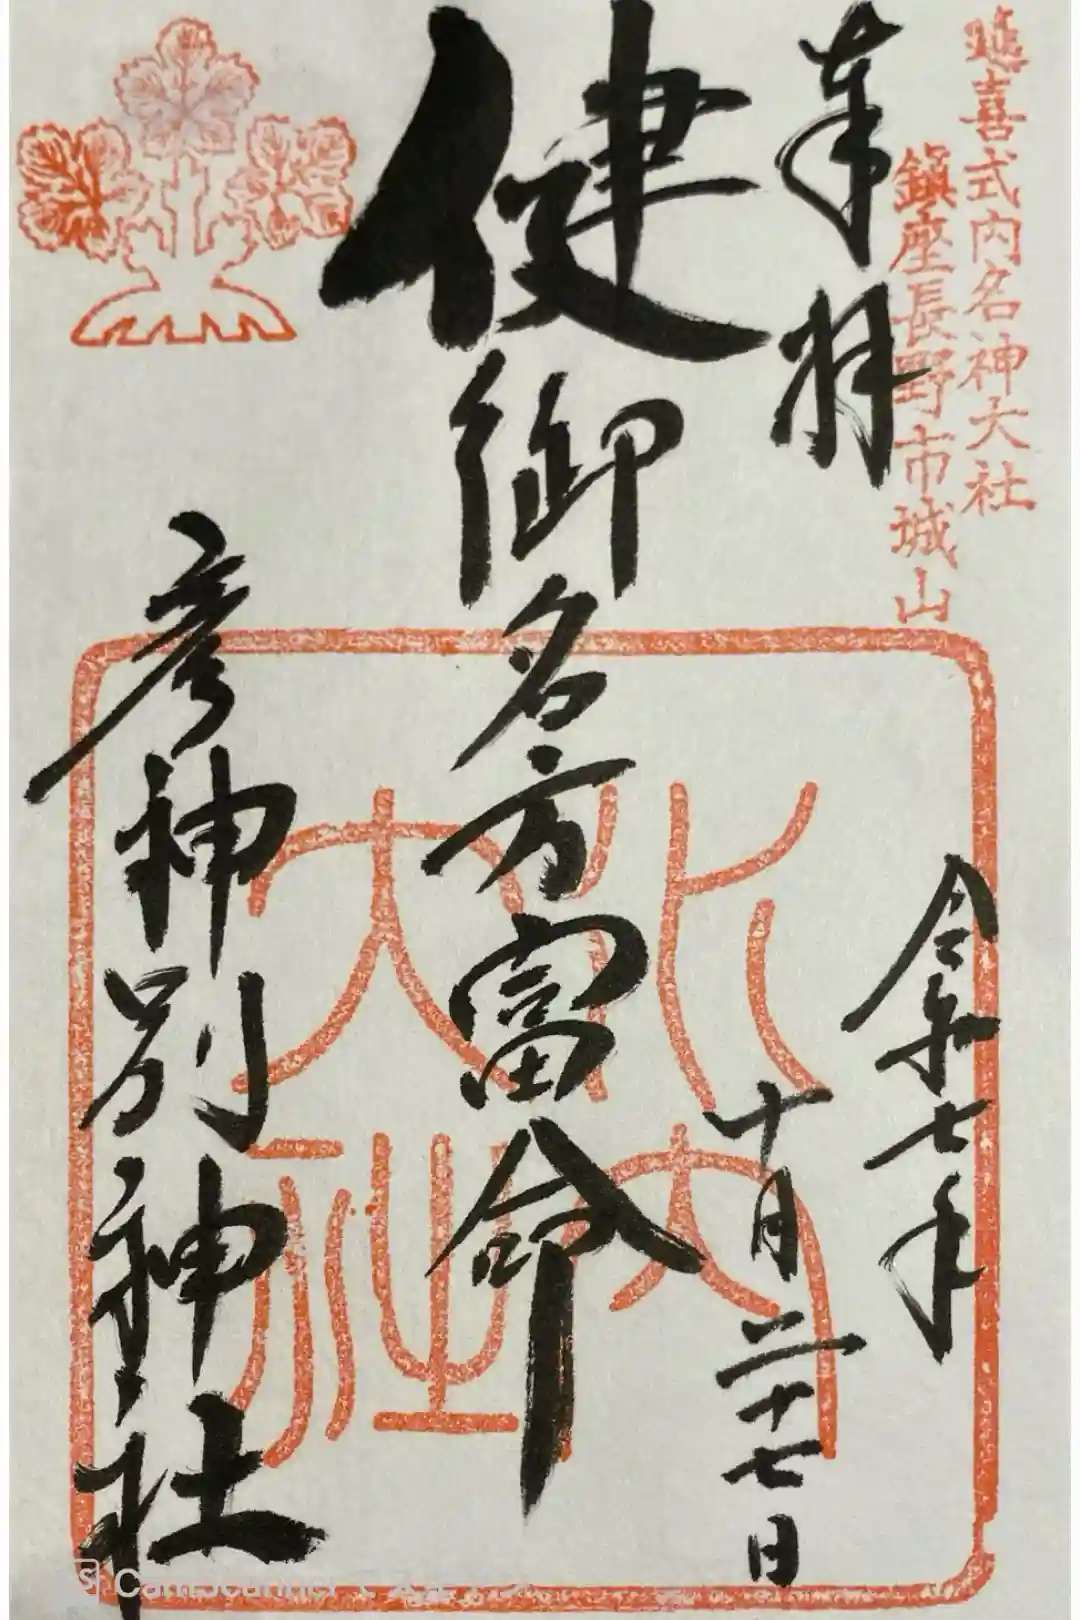 延喜式内名神大社
鎮座長野市城山
奉拝
令和七年
十月二十七日
健御名方富命
彦神別神社
式内大社
CamScanner